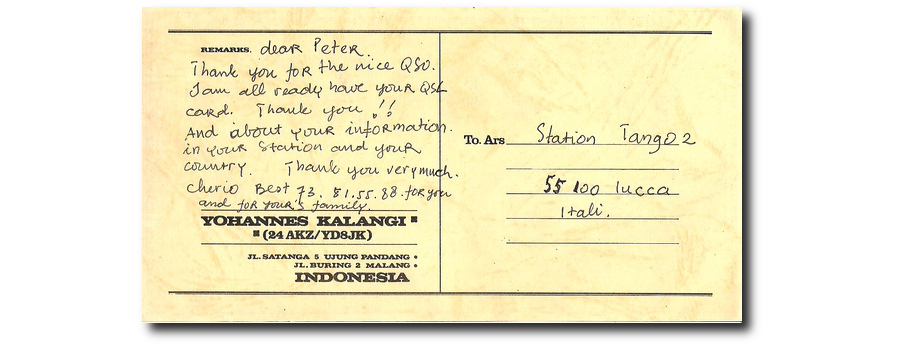 REMARKS. dear Peter.
Thank you for the nice QSO.
I am all ready have your QSL
card. Thank you !!
And about your information.
in your Station and your
country. Thank you verymuch.
cherio Best 73. 51.55.88.for you
and for your's family.
YOHANNES KALANGI
(24 AKZ/YD8JK)
JL. SATANGA 5 UJUNG PANDANG
JL. BURING 2 MALANG
INDONESIA
To Ars Station Tango 2
55 100 lucca
Itali.